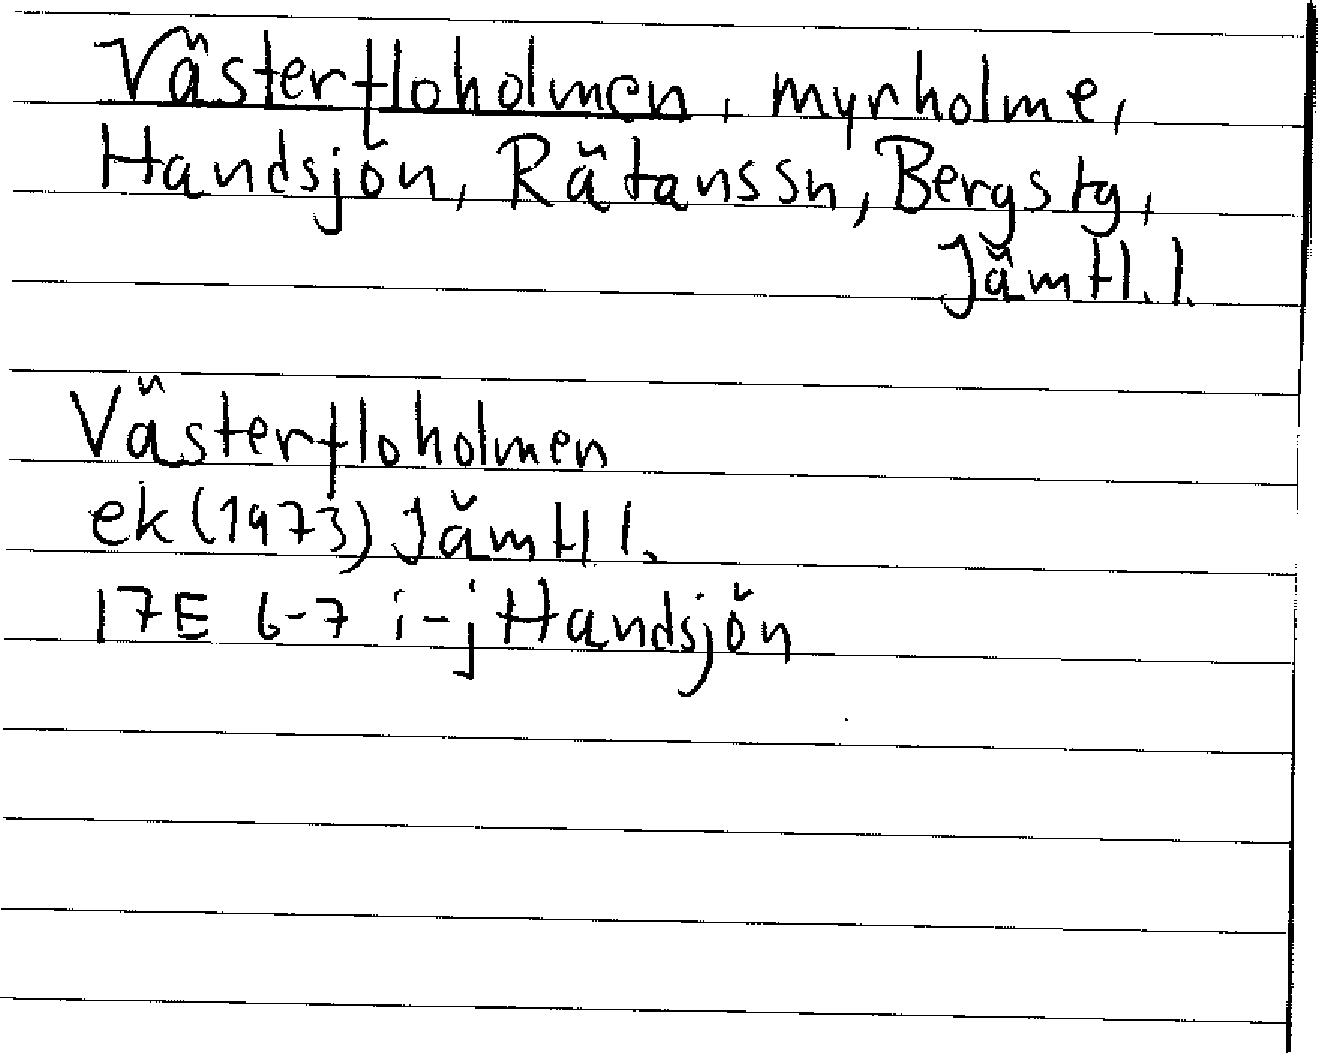 Västerfloholmen, myrholme,
Handsjön, Rätanssn, Bergstg,
Jämtl.l.
Västerfloholmen
ek (1973) Jämtl l.
17E 6-7 i-j Handsjön